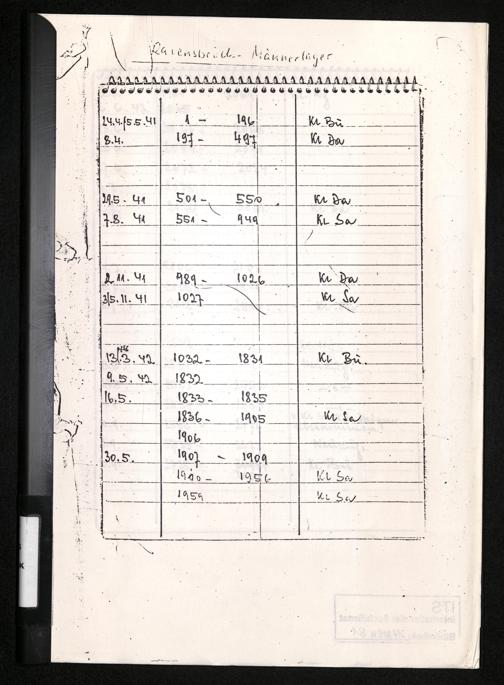 Ravensbrück - Männerlager
24.4./5.5.41 1 - 196 KL Bu
8.4. 197 - 497 KL Da
29.5. 41 501 - 550 KL Da
7.8. 41 551 - 949 KL Sa
2.11.41 989 - 1026 KL Da
3/5.11.41 1027 KL Sa
13./14.3.42 1032 - 1831 KL Bu.
9.5.42 1832
16.5. 1833 - 1835
1836 - 1905 KL Sa
1906
30.5. 1907 - 1909
1910 - 1956 KL Sa
1959 KL Sa
ITS
Internationaler Suchdienst